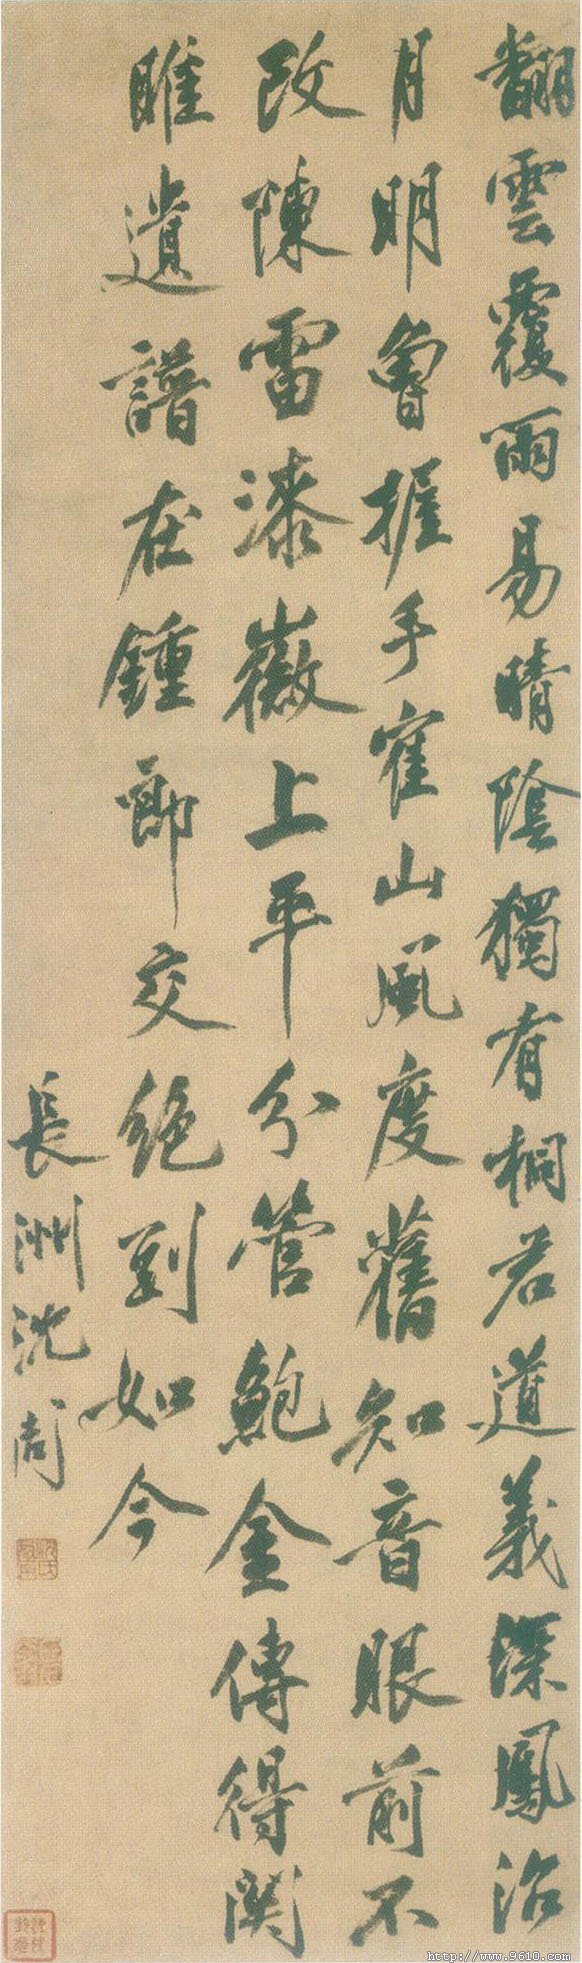 翻雲覆雨易晴陰獨有桐君道義深鳳沼
月明曾握手雀山風度舊知音眼前不
改陳雷漆徽上平分管鮑金傳得関
雎遺譜在鍾郎交絶到如今
長洲沈周
http://www.9610.com